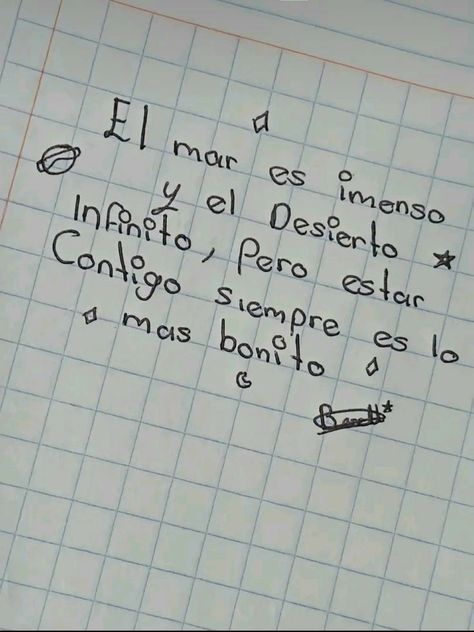 El mar es imenso
y el Desierto
Infinito, Pero estar
Contigo siempre es lo
mas bonito